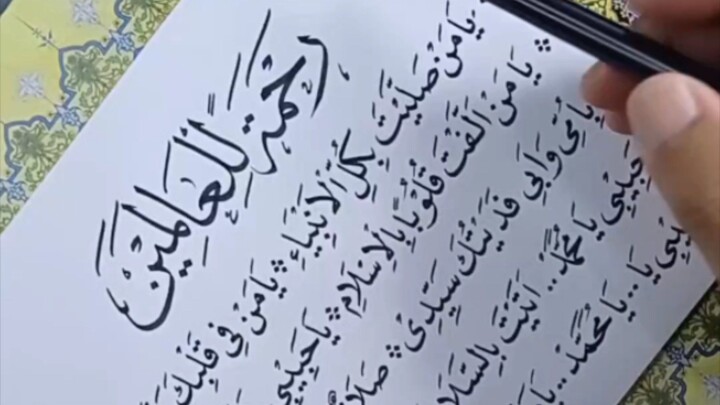 رَحْمَةً لِلْعَالَمِيْنَ
يَا مَنْ صَلَّيْتَ بِكُلِّ الْاَنْبِيَاءِ * يَا مَنْ فِي قَلْبِكَ
* يَا مَنْ اَلَّفْتَ قُلُوْبًا بِالْاِسْلَامِ * يَا حَبِيْبِي
بِاُمِّي وَاَبِي فَدَيْتُكَ سَيِّدِى * صَلَاةٌ
حَبِيْبِي يَا مُحَمَّدْ.. اَتَيْتَ بِالسَّلَا
بِي يَا.. يَا مُحَمَّدْ.. يَا